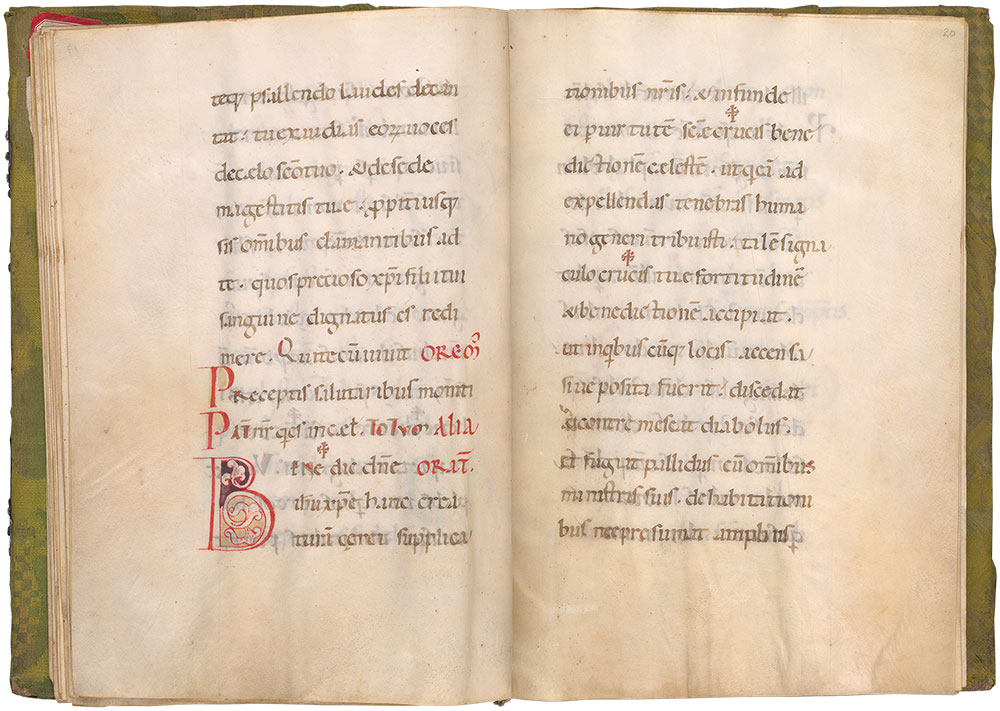 teq; psallendo laudes decan
tat. tu exaudias eoꝝ uoces
de celo scō tuo. & de sede
magestatis tue. ꝓpitiusq;
sis omībus clamantibus ad
te. quos precioso xp̄i filii tui
sanguine dignatus es redi
mere. Qui tecū uiuit OREM̄
Preceptis salutaribus moniti
PAT̄ nr̄ q̄ es in cel. TOTVM ALIA
Bene✠dic dn̄e ORAT̄.
ihu xp̄e hanc crea
turam cereu supplica
20
tionibus nr̄is. & infunde
✠
ei p uirtutē scē crucis bene
dictionē celestē. ut q̄ eā ad
expellendas tenebras huma
no generi tribuisti. talē signa
✠
culo crucis tue fortitudinē
& benedictionē accipiat.
ut in q̄bus cūq; locis accensa
siue posita fuerit. discedat
diabolus.
et fugiat pallidus cū omībus
ministris suis. de habitationi
bus nec presumat amplius